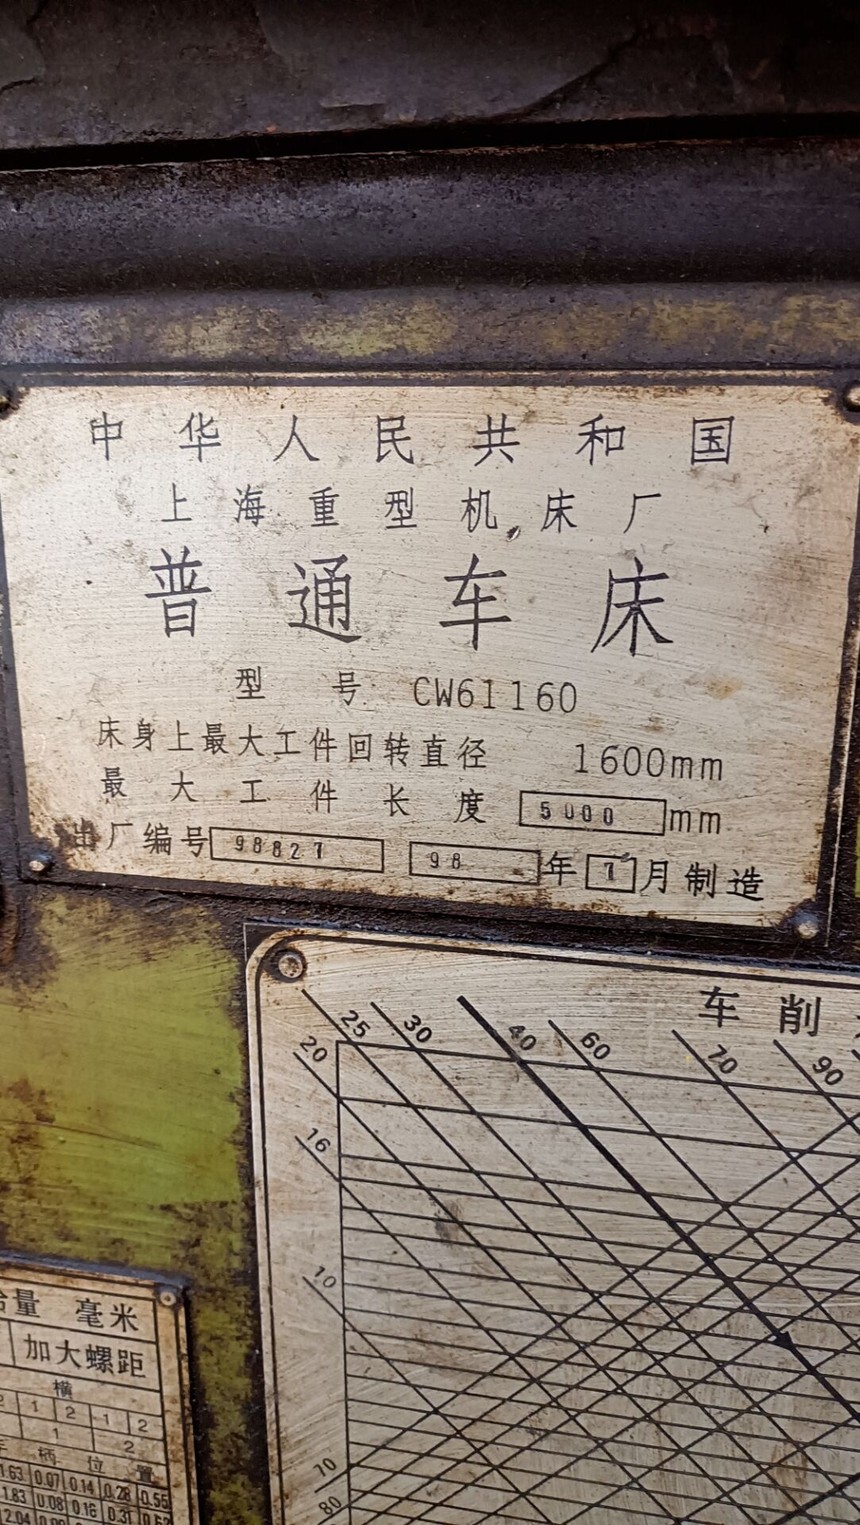 中华人民共和国
上海重型机床厂
普通车床
型号 CW61160
床身上最大工件回转直径 1600mm
最大工件长度 5000 mm
出厂编号 98827 98 年 7 月制造
车削
25 30 40 60 70 90
20
16
10
70
80
量 毫米
加大螺距
横
1 2 1 2
1 2
柄位置
1.63 0.07 0.14 0.28 0.55
1.83 0.08 0.16 0.31
2.04